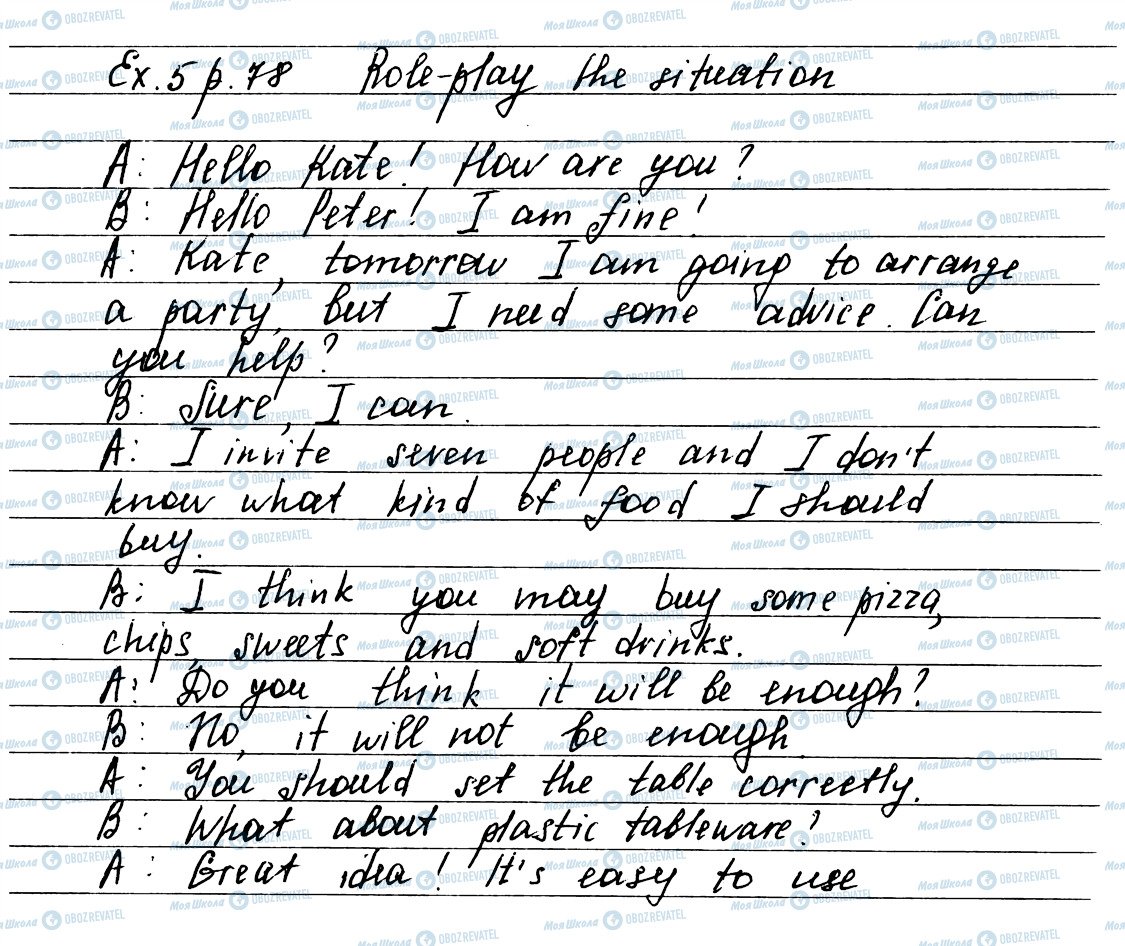 Ex. 5 p. 78 Role-play the situation
A: Hello Kate! How are you?
B: Hello Peter! I am fine!
A: Kate, tomorrow I am going to arrange
a party, but I need some advice. Can
you help?
B: Sure, I can.
A: I invite seven people and I don't
know what kind of food I should
buy.
B: I think you may buy some pizza,
chips, sweets and soft drinks.
A: Do you think it will be enough?
B: No, it will not be enough.
A: You should set the table correctly.
B: What about plastic tableware?
A: Great idea! It's easy to use